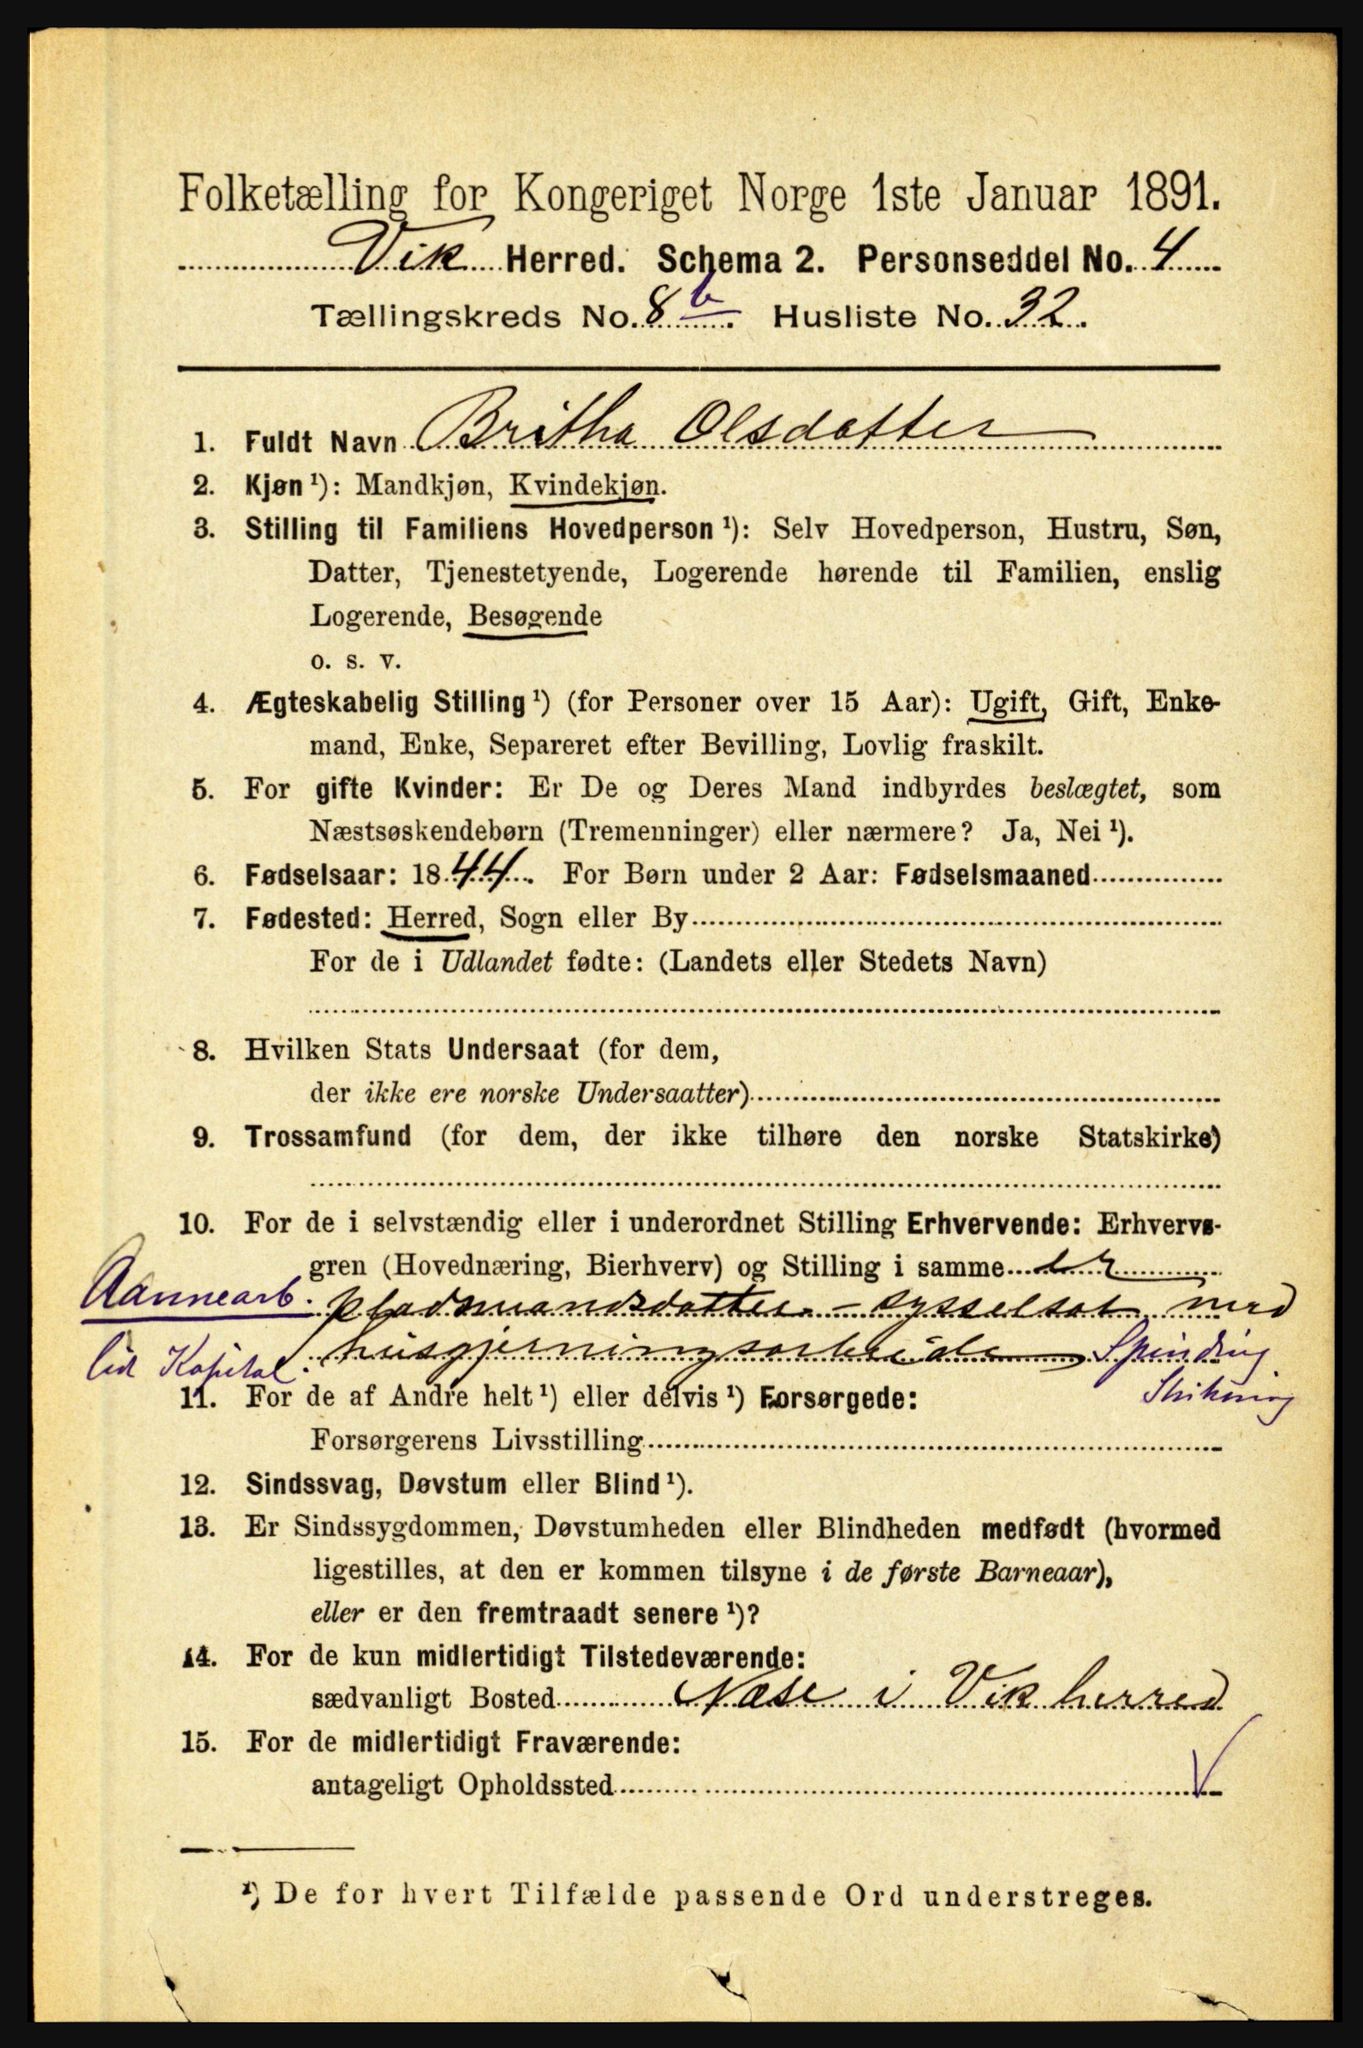 Folketælling for Kongeriget Norge 1ste Januar 1891.
Vik Herred. Schema 2. Personseddel No. 4
Tællingskreds No. 8 b. Husliste No. 32.
1. Fuldt Navn Britha Olsdatter
2. Kjøn¹): Mandkjøn, Kvindekjøn.
3. Stilling til Familiens Hovedperson¹): Selv Hovedperson, Hustru, Søn,
Datter, Tjenestetyende, Logerende hørende til Familien, enslig
Logerende, Besøgende
o. s. v.
4. Ægteskabelig Stilling¹) (for Personer over 15 Aar): Ugift, Gift, Enke-
mand, Enke, Separeret efter Bevilling, Lovlig fraskilt.
5. For gifte Kvinder: Er De og Deres Mand indbyrdes beslægtet, som
Næstsøskendebørn (Tremenninger) eller nærmere? Ja, Nei¹).
6. Fødselsaar: 1844. For Børn under 2 Aar: Fødselsmaaned
7. Fødested: Herred, Sogn eller By
For de i Udlandet fødte: (Landets eller Stedets Navn)
8. Hvilken Stats Undersaat (for dem,
der ikke ere norske Undersaatter)
9. Trossamfund (for dem, der ikke tilhøre den norske Statskirke)
10. For de i selvstændig eller i underordnet Stilling Erhvervende: Erhvervs-
gren (Hovednæring, Bierhverv) og Stilling i samme er
Aannearb. pladsmandsdatter - sysselsat med
lid Kapital. husgjerningsarbeide Spinding
Strikning
11. For de af Andre helt¹) eller delvis¹) Forsørgede:
Forsørgerens Livsstilling
12. Sindssvag, Døvstum eller Blind¹).
13. Er Sindssygdommen, Døvstumheden eller Blindheden medfødt (hvormed
ligestilles, at den er kommen tilsyne i de første Barneaar),
eller er den fremtraadt senere¹)?
14. For de kun midlertidigt Tilstedeværende:
sædvanligt Bosted Næse i Vik herred
15. For de midlertidigt Fraværende:
antageligt Opholdssted
¹) De for hvert Tilfælde passende Ord understreges.